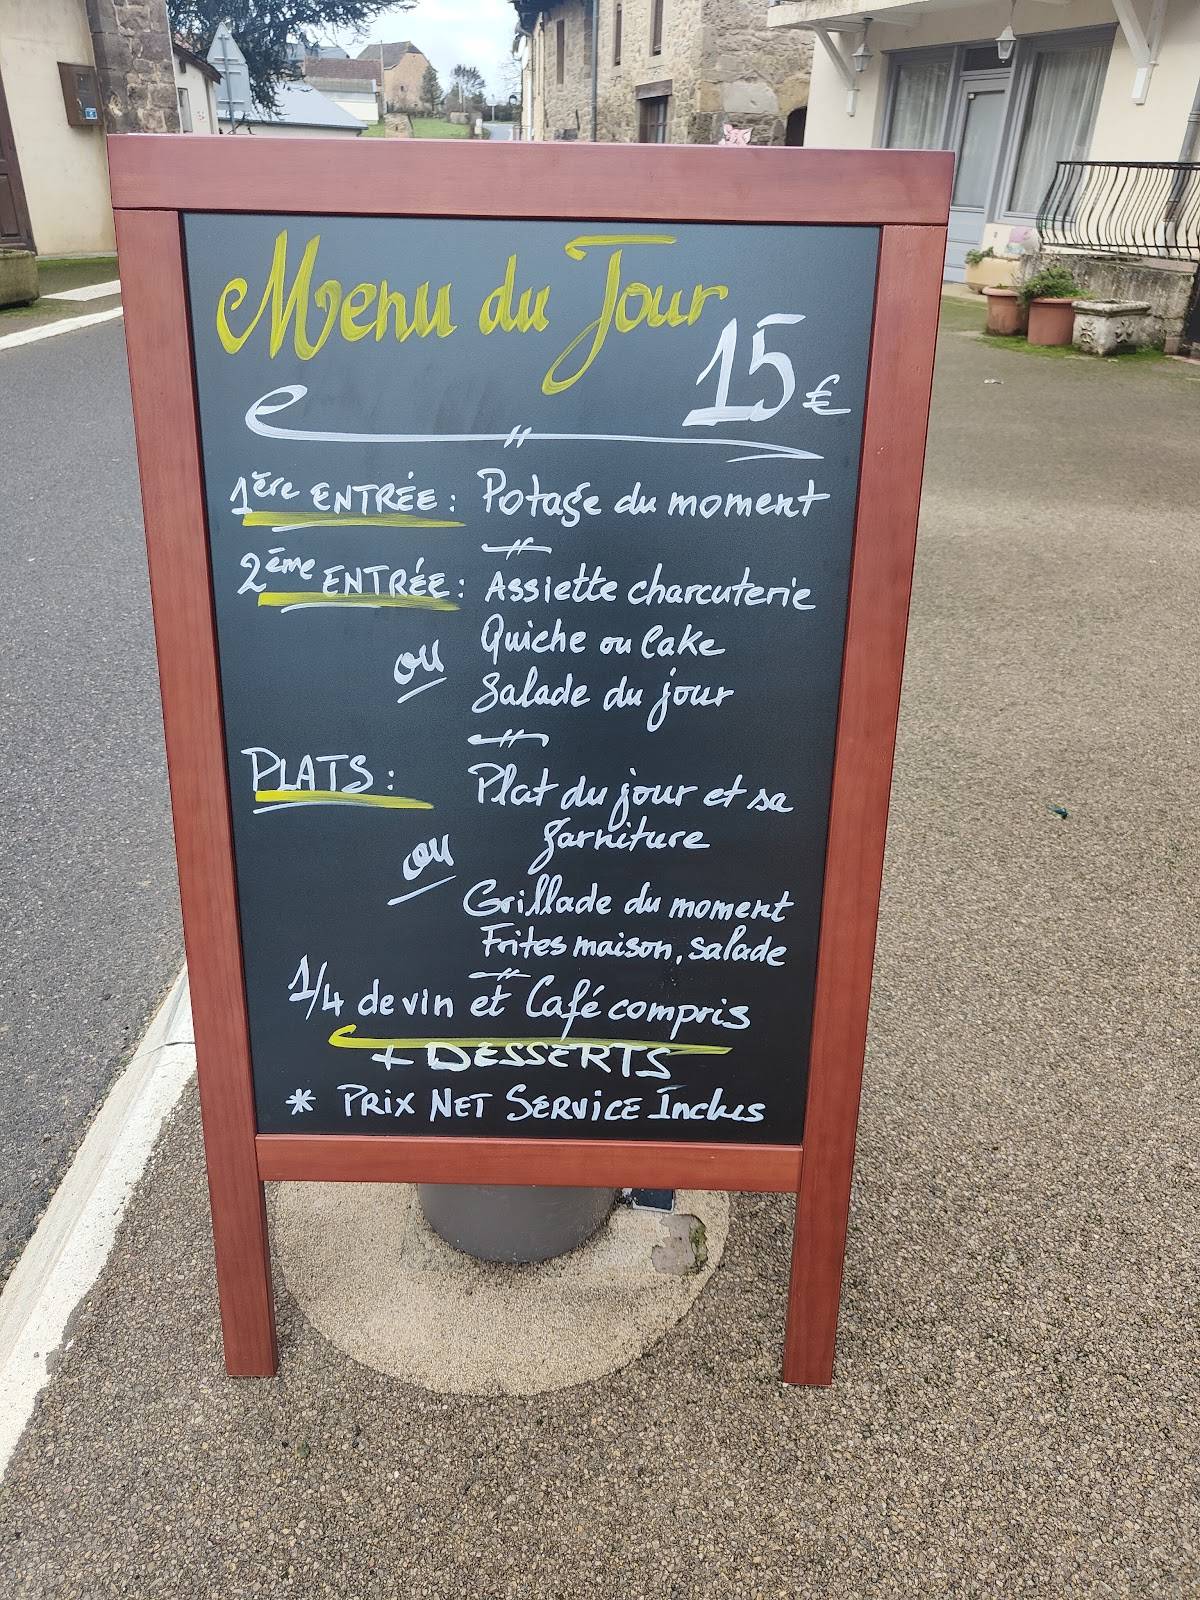 Menu du Jour
15 €
1ère ENTRÉE : Potage du moment
2ème ENTRÉE : Assiette charcuterie
Quiche ou Cake
ou
Salade du jour
PLATS : Plat du jour et sa
garniture
ou
Grillade du moment
Frites maison, salade
1/4 de vin et Café compris
+ DESSERTS
* PRIX NET SERVICE Inclus